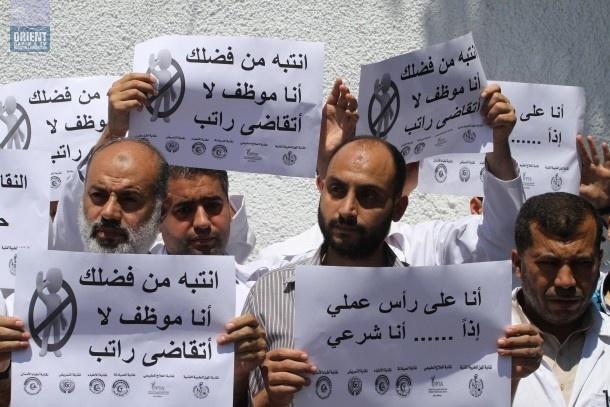 ORIENT
انتبه من فضلك
أنا موظف لا
أتقاضى راتب
انتبه من فضلك
أنا موظف لا
أتقاضى راتب
انتبه من فضلك
أنا موظف لا
أتقاضى راتب
أنا على
إذاً ......
النقا
انتبه من فضلك
أنا موظف لا
أتقاضى راتب
أنا على رأس عملي
إذاً ...... أنا شرعي